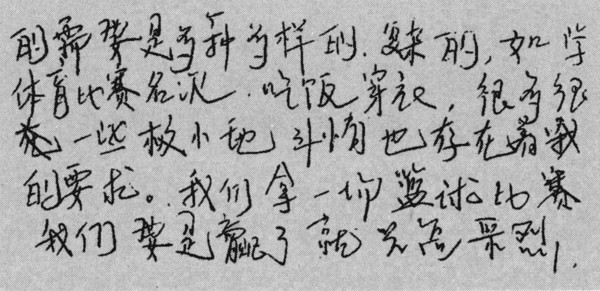 的需要是多种多样的、复杂的,如学
体育比赛名次、吃饭穿衣,很多很
一些极小地斗情也存在着我
的要求。我们拿一场篮球比赛
我们要是赢了就兴高采烈,